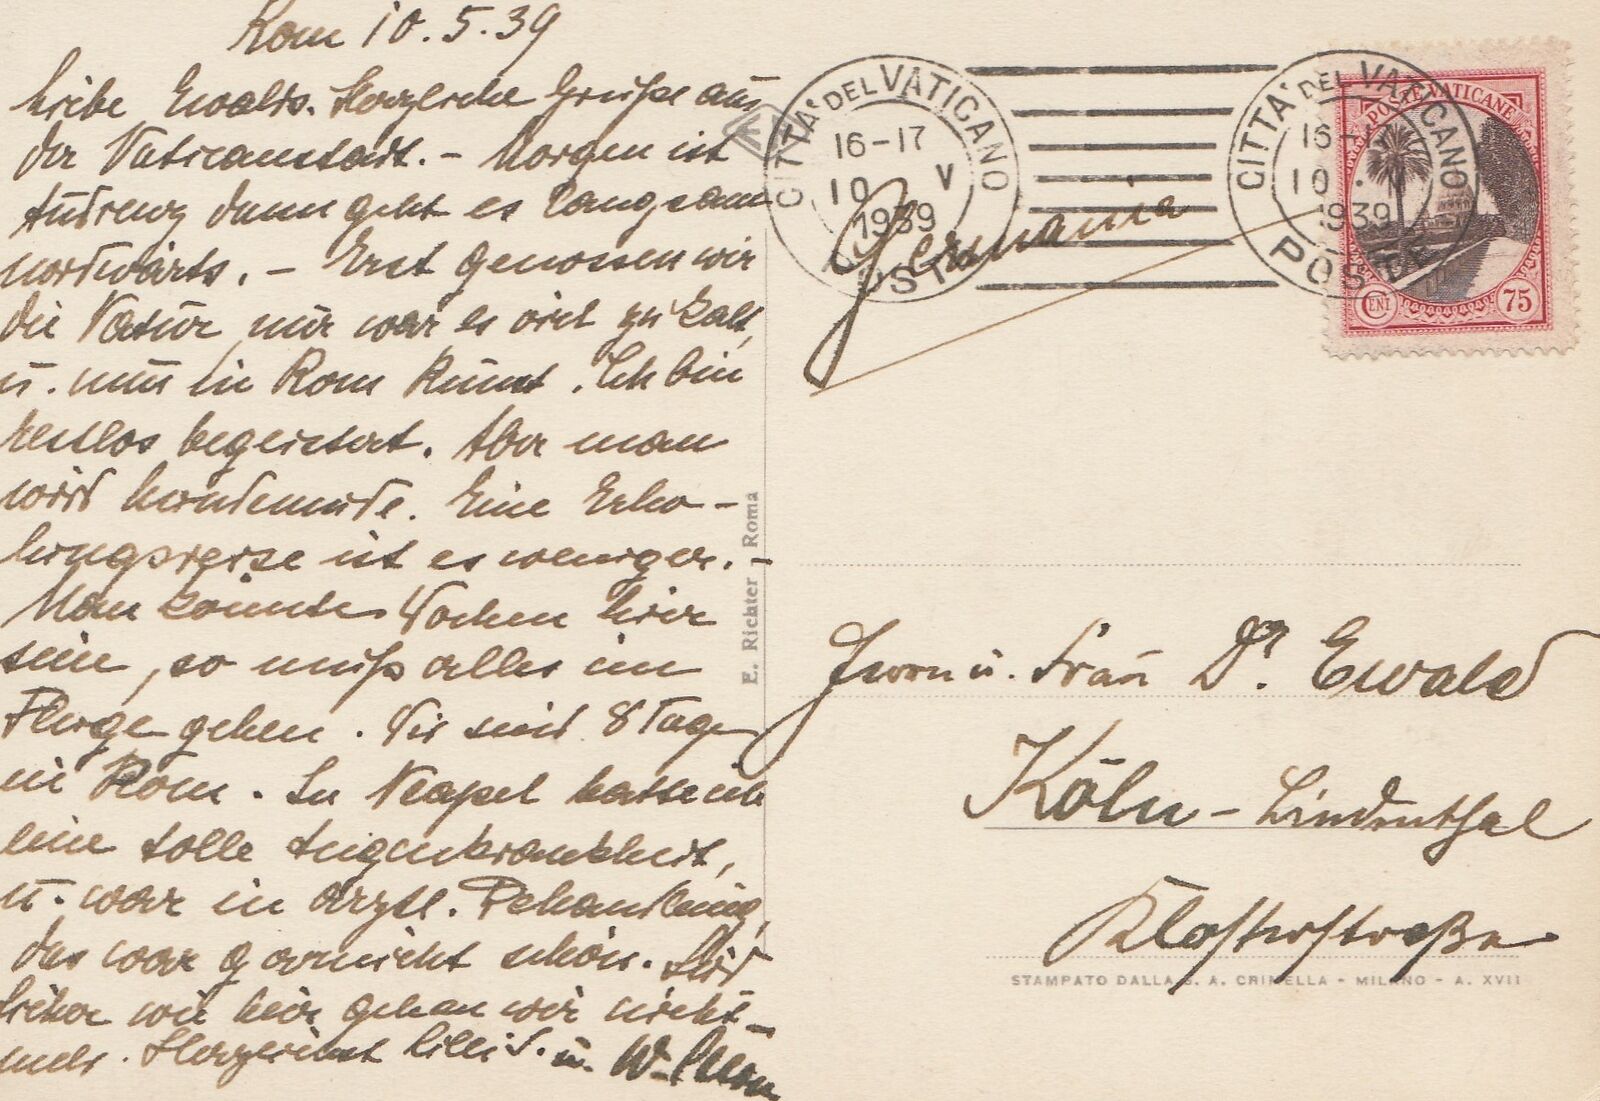 Rom 10.5.39
Liebe Ewalds. Herzliche Grüße aus
der Vaticanstadt. – Morgen ist
Audienz dann geht es langsam
nordwärts. – Erst genossen wir
die Natur, nur war es viel zu kalt,
u. nun in Rom Kunst. Ich bin
restlos begeistert. Aber man
wird hundemüde. Eine Erho-
lungsreise ist es weniger. –
Man könnte Wochen hier
sein, so muß alles im
Fluge gehen. Wir sind 8 Tage
in Rom. In Neapel hatte ich
eine tolle Augenkrankheit,
u. war in ärztl. Behandlung,
das war garnicht schön.
wie hier gehen wir nicht
mehr. Herzlichst u. W.
E. Richter - Roma
CITTA' DEL VATICANO
16-17
10 V
1939
POSTE
CITTA' DEL VATICANO
16-17
10 V
1939
POSTE
POSTE VATICANE
CENT 75
Germania
Herrn u. Frau Dr. Ewald
Köln - Lindenthal
Klosterstraße
STAMPATO DALLA S. A. CRIMELLA - MILANO - A. XVII